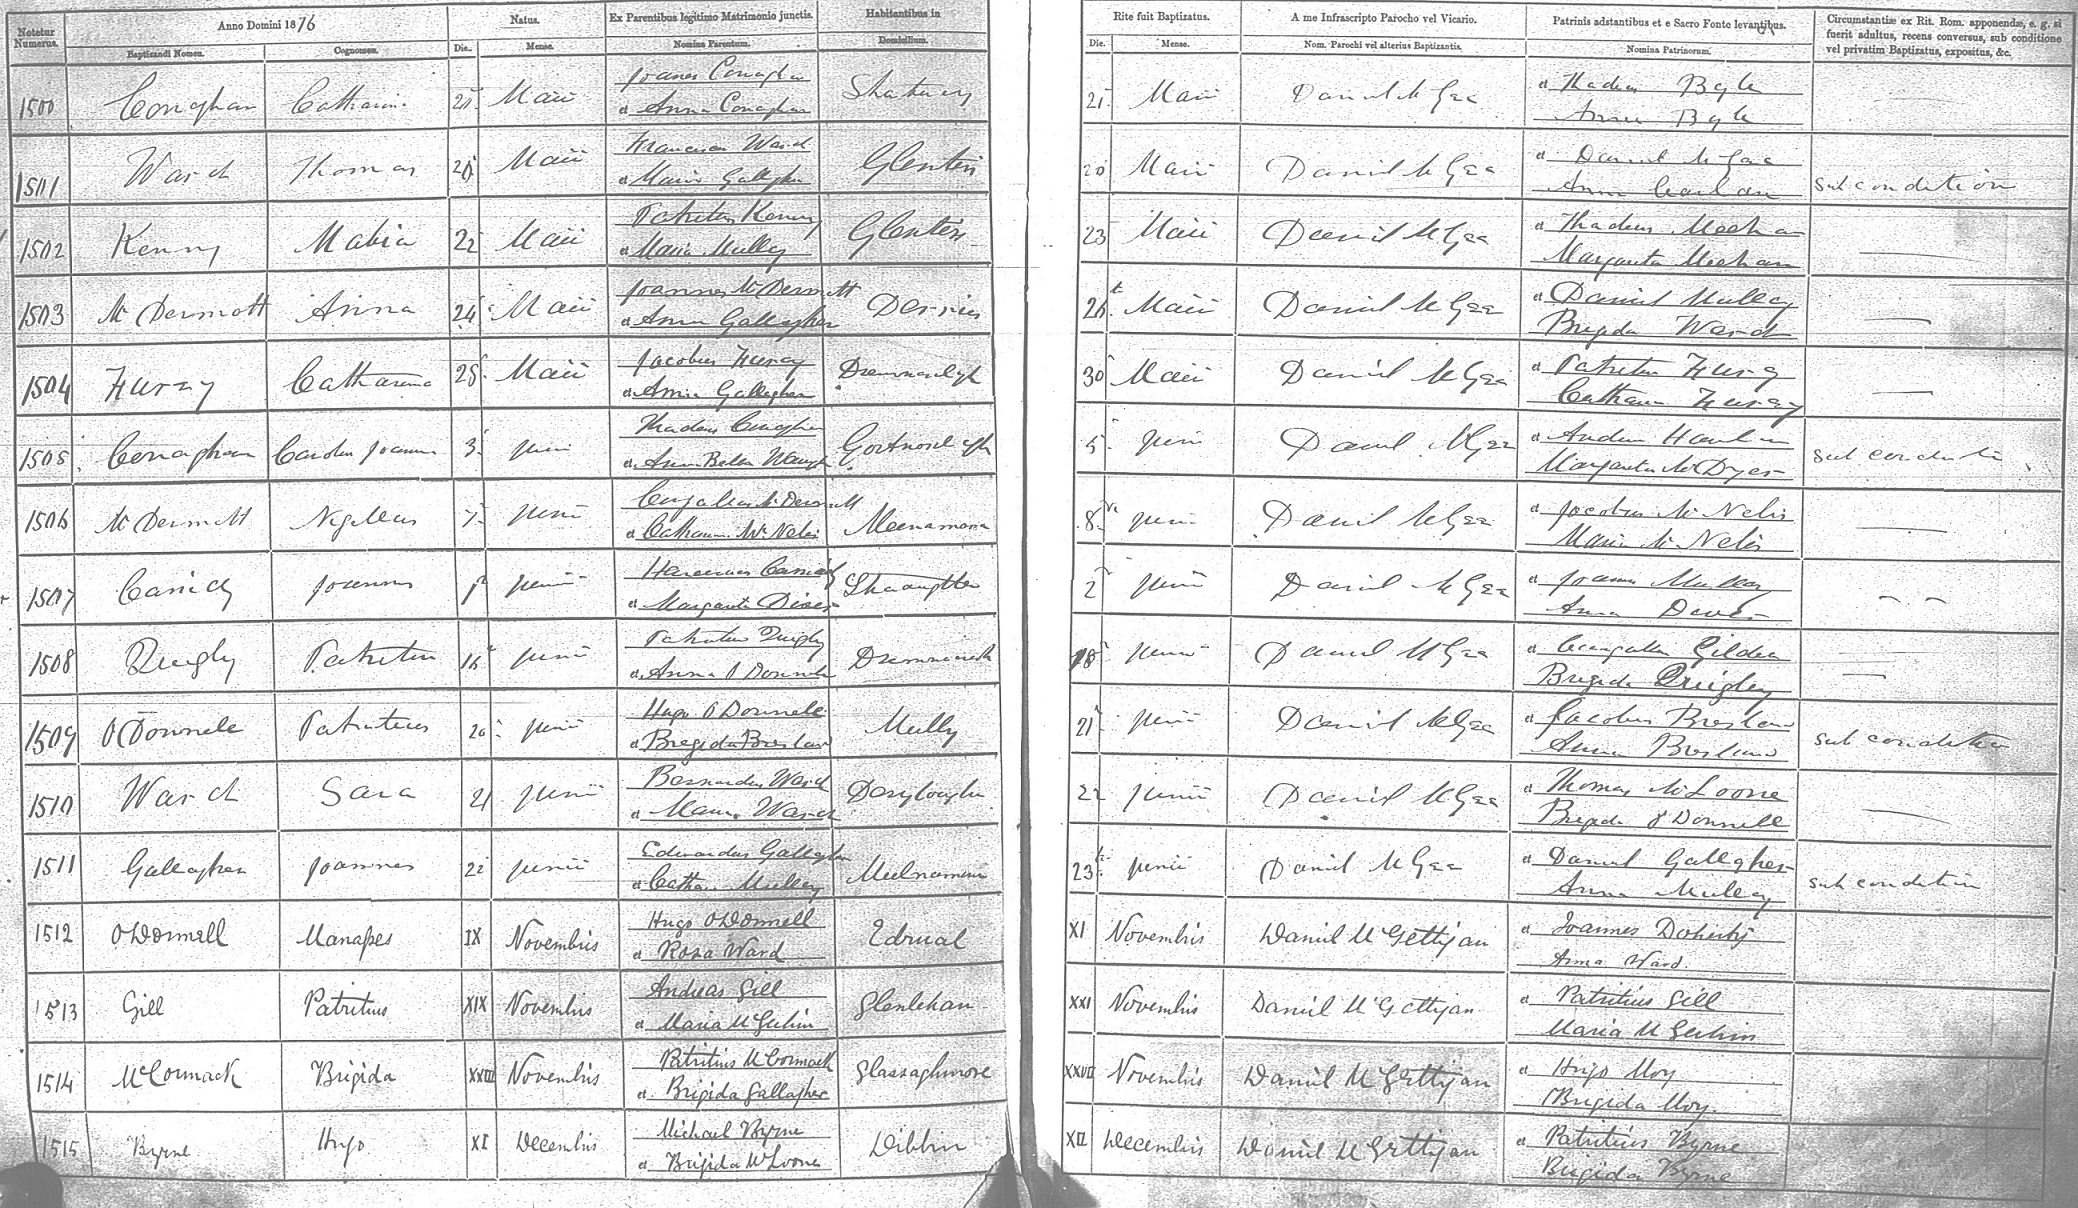 Notetur Numerus.
Anno Domini 1876
Baptizandi Nomen.
Cognomen.
Natus.
Die.
Mense.
Ex Parentibus legitimo Matrimonio junctis.
Nomina Parentum.
Habitantibus in
Domicilium.
Rite fuit Baptizatus.
Die.
Mense.
A me Infrascripto Parocho vel Vicario.
Nom. Parochi vel alterius Baptizantis.
Patrinis adstantibus et e Sacro Fonte levantibus.
Nomina Patrinorum.
Circumstantiæ ex Rit. Rom. apponendæ, e. g. si
fuerit adultus, recens conversus, sub conditione
vel privatim Baptizatus, expositus, &c.
1500 Conaghan Maii
et Anna Conaghan
21 Maii Daniel McGee
et Thadeus Byle
Anna Byle
1501 Ward Thomas Maii Glenties
Franciscus Ward
et Maria Gallagher
20 Maii Daniel McGee
et Daniel McGee
Anna sub condition
1502 Kenny Mabia 22 Maii Glenties
Patritius Kenny
et Maria Mulley
23 Maii Daniel McGee
et Thadeus Meehan
Margarita Meehan
1503 McDermott Anna 24 Maii Derries
Joannes McDermott
et Anna Gallagher
Maii Daniel McGee
et Daniel Mulley
Brigida Ward
1504 Furey Catharina 28 Maii
Jacobus Furey
et Anna Gallagher
30 Maii Daniel McGee
et Patritius Furey
Catharina Furey
1505 Conaghan Joanna 3 Junii
et Anna Bella Waugh
5 Junii Daniel McGee
Margarita McDyer
sub conditi
1506 McDermott Nigellus 7 Junii Meenamara
McDermott
et Catharina McNelis
8 Junii Daniel McGee
et Jacobus McNelis
Maria McNelis
1507 Joannes 1 Junii
et Margarita
2 Junii Daniel McGee
et Joannes Mulley
Anna
1508 Quigly Patritius 16 Junii
Patritius Quigly
et Anna O Donnell
18 Junii Daniel McGee
et Gildea
Brigida Quigley
1509 O'Donnell Patritius 20 Junii Mully
Hugo O'Donnell
et Brigida Breslan
21 Junii Daniel McGee
et Jacobus Breslan
Anna Breslan
sub conditi
1510 Ward Sara 21 Junii
Bernardus Ward
et Maria Ward
22 Junii Daniel McGee
et Thomas McLoone
Brigida O'Donnell
1511 Gallagher Joannes 22 Junii
Edwardus Gallagher
et Cathar Mulley
23 Junii Daniel McGee
et Daniel Gallagher
Anna Mulley
sub condition
1512 O'Donnell Manasses IX Novembris Edrual
Hugo O'Donnell
et Rosa Ward
XI Novembris Daniel McGettigan
et Joannes Doherty
Anna Ward.
1513 Gill Patritius XIX Novembris Glenlehan
Andreas Gill
et Maria McGeehin
XXI Novembris Daniel McGettigan
et Patritius Gill
Maria McGeehin
1514 McCormack Brigida XXIII Novembris Glassaghmore
Patritius McCormack
et Brigida Gallagher
XXVII Novembris Daniel McGettigan
et Hugo Moy
Brigida Moy.
1515 Byrne Hugo XI Decembris Dibbin
Michael Byrne
et Brigida McLoone
XII Decembris Daniel McGettigan
et Patritius Byrne
Brigida Byrne